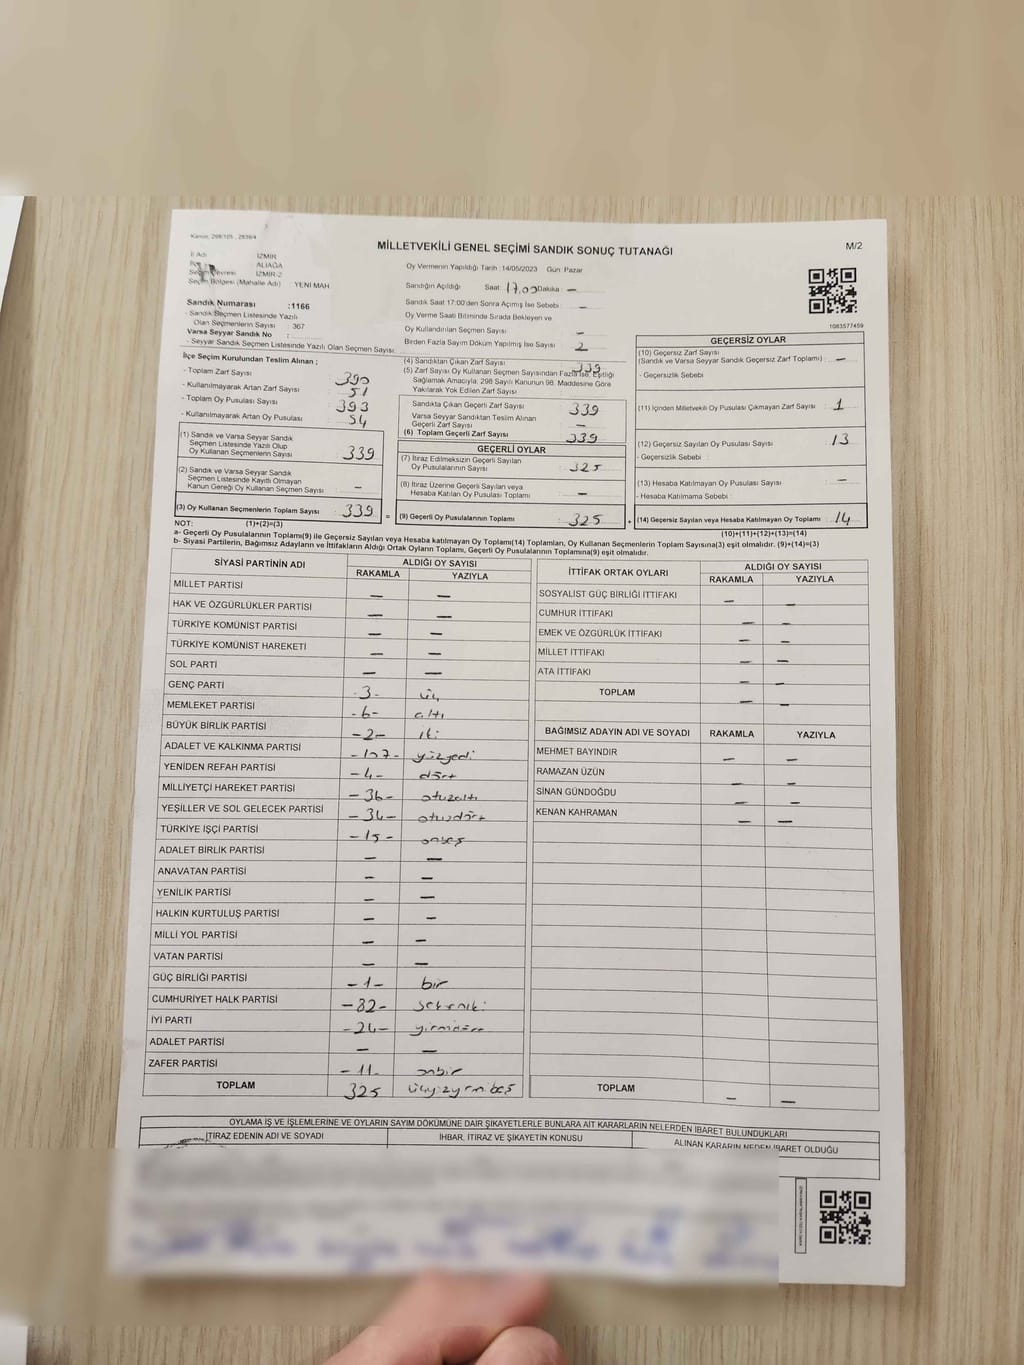 Kanun, 298/105 , 2839/4
MİLLETVEKİLİ GENEL SEÇİMİ SANDIK SONUÇ TUTANAĞI
M/2
İl Adı İZMİR
İlçe ALİAĞA
Seçim Çevresi İZMİR-2
Seçim Bölgesi (Mahalle Adı) : YENİ MAH.
Oy Vermenin Yapıldığı Tarih : 14/05/2023 Gün: Pazar
Sandığın Açıldığı Saat: 17.00 Dakika: —
Sandık Saat 17:00'den Sonra Açılmış İse Sebebi : —
Oy Verme Saati Bitiminde Sırada Bekleyen ve
Oy Kullandırılan Seçmen Sayısı —
Birden Fazla Sayım Döküm Yapılmış İse Sayısı : 2
1083577459
Sandık Numarası :1166
- Sandık Seçmen Listesinde Yazılı
Olan Seçmenlerin Sayısı : 367
Varsa Seyyar Sandık No :
- Seyyar Sandık Seçmen Listesinde Yazılı Olan Seçmen Sayısı :
İlçe Seçim Kurulundan Teslim Alınan ;
- Toplam Zarf Sayısı 390
- Kullanılmayarak Artan Zarf Sayısı 51
- Toplam Oy Pusulası Sayısı 393
- Kullanılmayarak Artan Oy Pusulası 54
(1) Sandık ve Varsa Seyyar Sandık
Seçmen Listesinde Yazılı Olup
Oy Kullanan Seçmenlerin Sayısı 339
(2) Sandık ve Varsa Seyyar Sandık
Seçmen Listesinde Kayıtlı Olmayan
Kanun Gereği Oy Kullanan Seçmen Sayısı —
(3) Oy Kullanan Seçmenlerin Toplam Sayısı 339
(4) Sandıktan Çıkan Zarf Sayısı 339
(5) Zarf Sayısı Oy Kullanan Seçmen Sayısından Fazla İse, Eşitliği
Sağlamak Amacıyla, 298 Sayılı Kanunun 98. Maddesine Göre
Yakılarak Yok Edilen Zarf Sayısı
Sandıkta Çıkan Geçerli Zarf Sayısı 339
Varsa Seyyar Sandıktan Teslim Alınan
Geçerli Zarf Sayısı —
(6) Toplam Geçerli Zarf Sayısı 339
GEÇERLİ OYLAR
(7) İtiraz Edilmeksizin Geçerli Sayılan
Oy Pusulalarının Sayısı 325
(8) İtiraz Üzerine Geçerli Sayılan veya
Hesaba Katılan Oy Pusulası Toplamı —
= (9) Geçerli Oy Pusulalarının Toplamı 325
GEÇERSİZ OYLAR
(10) Geçersiz Zarf Sayısı
(Sandık ve Varsa Seyyar Sandık Geçersiz Zarf Toplamı) : —
- Geçersizlik Sebebi
(11) İçinden Milletvekili Oy Pusulası Çıkmayan Zarf Sayısı : 1
(12) Geçersiz Sayılan Oy Pusulası Sayısı 13
- Geçersizlik Sebebi :
(13) Hesaba Katılmayan Oy Pusulası Sayısı —
- Hesaba Katılmama Sebebi :
+ (14) Geçersiz Sayılan veya Hesaba Katılmayan Oy Toplamı 14
NOT: (1)+(2)=(3)
(10)+(11)+(12)+(13)=(14)
a- Geçerli Oy Pusulalarının Toplamı(9) ile Geçersiz Sayılan veya Hesaba katılmayan Oy Toplamı(14) Toplamları, Oy Kullanan Seçmenlerin Toplam Sayısına(3) eşit olmalıdır. (9)+(14)=(3)
b- Siyasi Partilerin, Bağımsız Adayların ve İttifakların Aldığı Ortak Oyların Toplamı, Geçerli Oy Pusulalarının Toplamına(9) eşit olmalıdır.
SİYASİ PARTİNİN ADI ALDIĞI OY SAYISI
RAKAMLA YAZIYLA
MİLLET PARTİSİ — —
HAK VE ÖZGÜRLÜKLER PARTİSİ — —
TÜRKİYE KOMÜNİST PARTİSİ — —
TÜRKİYE KOMÜNİST HAREKETİ — —
SOL PARTİ — —
GENÇ PARTİ -3- üç
MEMLEKET PARTİSİ -6- altı
BÜYÜK BİRLİK PARTİSİ -2- iki
ADALET VE KALKINMA PARTİSİ -107- yüzyedi
YENİDEN REFAH PARTİSİ -4- dört
MİLLİYETÇİ HAREKET PARTİSİ -36- otuzaltı
YEŞİLLER VE SOL GELECEK PARTİSİ -34- otuzdört
TÜRKİYE İŞÇİ PARTİSİ -15- onbeş
ADALET BİRLİK PARTİSİ — —
ANAVATAN PARTİSİ — —
YENİLİK PARTİSİ — —
HALKIN KURTULUŞ PARTİSİ — —
MİLLİ YOL PARTİSİ — —
VATAN PARTİSİ — —
GÜÇ BİRLİĞİ PARTİSİ -1- bir
CUMHURİYET HALK PARTİSİ -82- sekseniki
İYİ PARTİ -24- yirmidört
ADALET PARTİSİ — —
ZAFER PARTİSİ -11- onbir
TOPLAM 325 üçyüzyirmibeş
İTTİFAK ORTAK OYLARI ALDIĞI OY SAYISI
RAKAMLA YAZIYLA
SOSYALİST GÜÇ BİRLİĞİ İTTİFAKI — —
CUMHUR İTTİFAKI — —
EMEK VE ÖZGÜRLÜK İTTİFAKI — —
MİLLET İTTİFAKI — —
ATA İTTİFAKI — —
TOPLAM — —
BAĞIMSIZ ADAYIN ADI VE SOYADI RAKAMLA YAZIYLA
MEHMET BAYINDIR — —
RAMAZAN ÜZÜN — —
SİNAN GÜNDOĞDU — —
KENAN KAHRAMAN — —
TOPLAM — —
OYLAMA İŞ VE İŞLEMLERİNE VE OYLARIN SAYIM DÖKÜMÜNE DAİR ŞİKAYETLERLE BUNLARA AİT KARARLARIN NELERDEN İBARET BULUNDUKLARI
İTİRAZ EDENİN ADI VE SOYADI İHBAR, İTİRAZ VE ŞİKAYETİN KONUSU ALINAN KARARIN NEDEN İBARET OLDUĞU